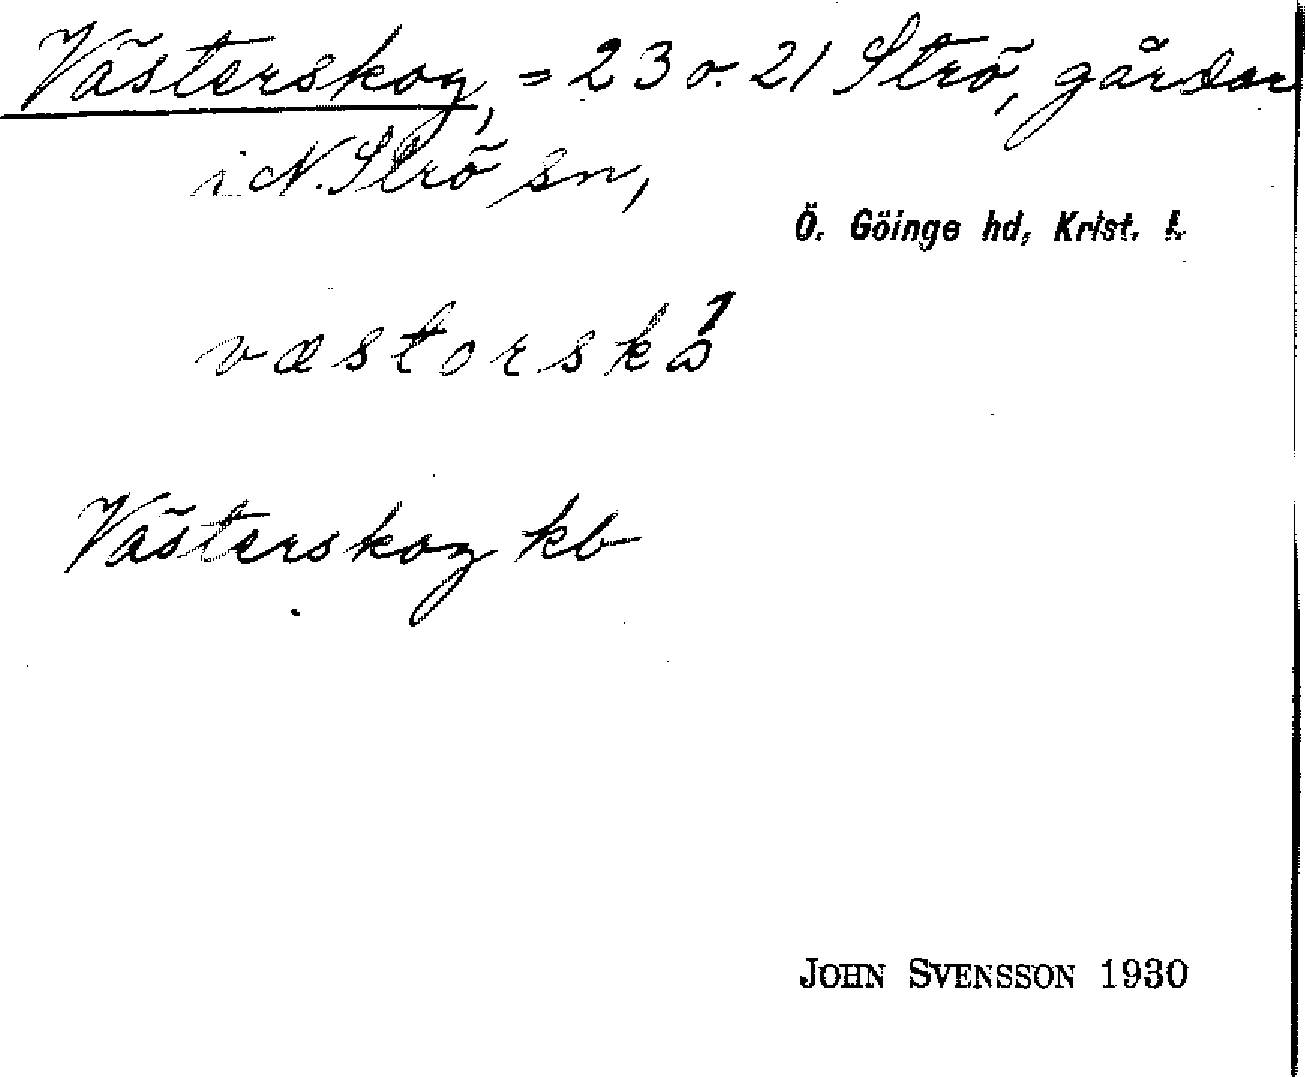 Västerskog, = 23 o. 21 Strö, gårdar
i N. Strö sn,
Ö. Göinge hd, Krist. l.
væstorskå
Västerskog kb
JOHN SVENSSON 1930